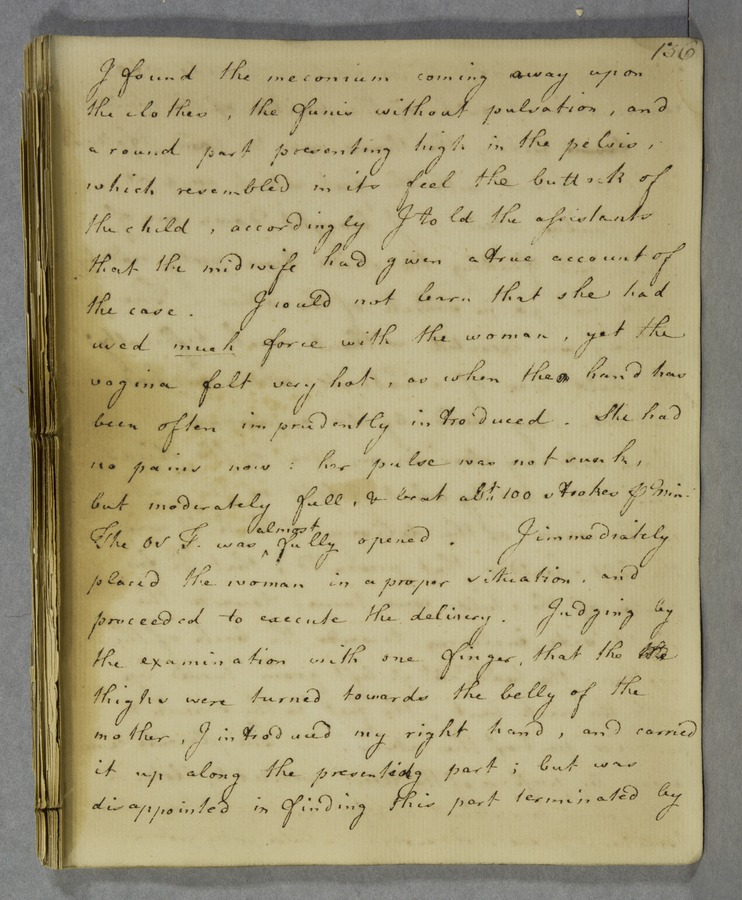 136
I found the meconium coming away upon
the clothes, the funis without pulsation, and
a round part presenting high in the pelvis,
which resembled in its feel the buttock of
the child, accordingly I told the assistants
that the midwife had given a true account of
the case. I could not learn that she had
used much force with the woman, yet the
vagina felt very hot, as when the hand has
been often imprudently introduced. She had
no pains now: her pulse was not sunk,
but moderately full, & beat abt. 100 strokes pr min.
The os T. was almost fully opened. I immediately
placed the woman in a proper situation, and
proceeded to execute the delivery. Judging by
the examination with one finger, that the
thighs were turned towards the belly of the
mother, I introduced my right hand, and carried
it up along the presenting part; but was
disappointed in finding this part terminated by